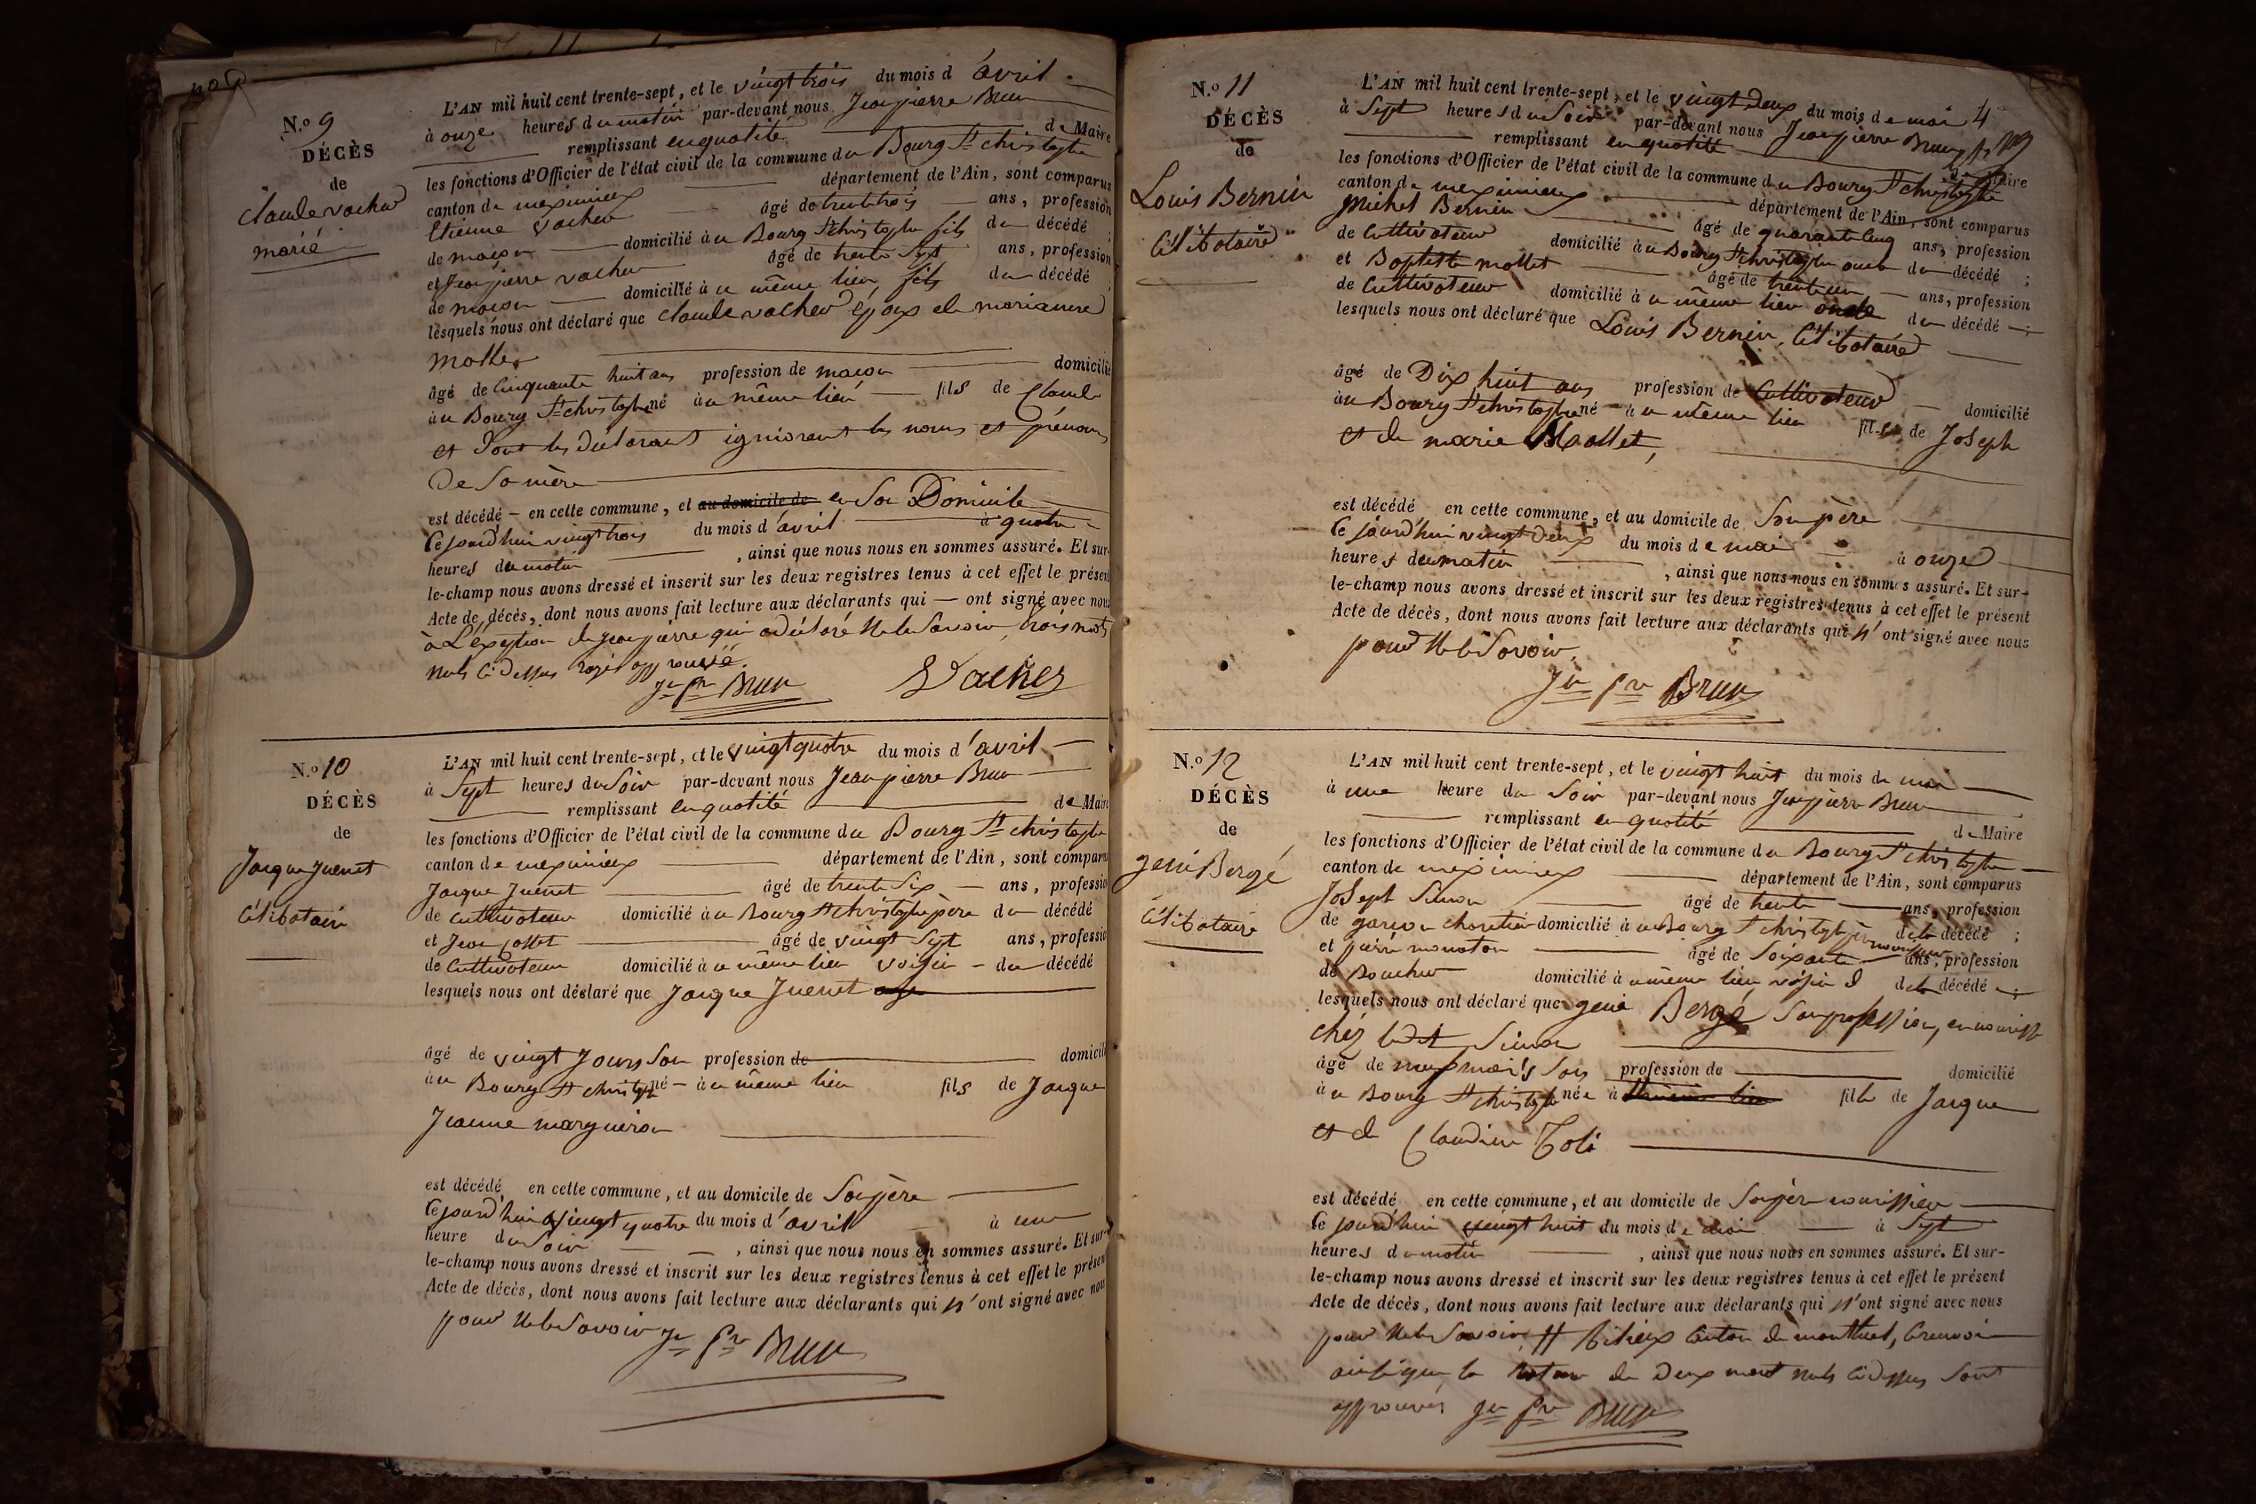 N.o 9
DÉCÈS
de
Claude vacher
marié
L'AN mil huit cent trente-sept, et le vingt trois du mois d'avril
à onze heures du matin par-devant nous Jean pierre Brun
remplissant en qualité de Maire
les fonctions d'Officier de l'état civil de la commune du Bourg St christophe
canton de meximieux département de l'Ain, sont comparus
Etienne vacher âgé de trente trois ans, profession
de maçon domicilié au Bourg St christophe fils du décédé ;
et Jean pierre vacher âgé de trente Sept ans, profession
de maçon domicilié à u même lieu fils du décédé ;
lesquels nous ont déclaré que claude vacher époux de marianne
mollet
âgé de Cinquante huit ans profession de maçon domicilié
àu Bourg St christophe né àu même lieu fils de Claude
et dont les déclarants igniorent les noms et prénoms
De Sa mère
est décédé en cette commune, et au domicile de en Son Domicile
Ce jourd'hui vingt trois du mois d'avril à quatre
heures du matin, ainsi que nous nous en sommes assuré. Et sur-
le-champ nous avons dressé et inscrit sur les deux registres tenus à cet effet le présent
Acte de décès, dont nous avons fait lecture aux déclarants qui — ont signé avec nous
à L'éxeption de Jean pierre qui a déclaré Ne le Savoir, trois mots
Nuls Ci dessus rayé approuvé.
Jn Pre Brun Vacher
N.o 10
DÉCÈS
de
Jacque Juenet
Célibataire
L'AN mil huit cent trente-sept, et le vingt quatre du mois d'avril
à Sept heures du Soir par-devant nous Jean pierre Brun
remplissant en qualité de Maire
les fonctions d'Officier de l'état civil de la commune du Bourg St christophe
canton de meximieux département de l'Ain, sont comparus
Jacque Juenet âgé de trente Six ans, profession
de Cultivateur domicilié àu Bourg St christophe père du décédé
et Jean âgé de vingt Sept ans, profession
de Cultivateur domicilié à u même lieu voisin du décédé
lesquels nous ont déclaré que Jacque Juenet
âgé de vingt Jours Son profession de domicilié
àu Bourg St christophe né àu même lieu fils de Jacque
Jeanne marguiron
est décédé en cette commune, et au domicile de Son père
Ce jourd'hui vingt quatre du mois d'avril à une
heure du Soir, ainsi que nous nous en sommes assuré. Et sur-
le-champ nous avons dressé et inscrit sur les deux registres tenus à cet effet le présent
Acte de décès, dont nous avons fait lecture aux déclarants qui n'ont signé avec nous
pour Ne le Savoir Jn Pre Brun
N.o 11
DÉCÈS
de
Louis Bernin
Célibataire
L'AN mil huit cent trente-sept, et le vingt deux du mois de mai
à Sept heures du Soir par-devant nous Jean pierre Brun
remplissant en qualité de Maire
les fonctions d'Officier de l'état civil de la commune du Bourg St christophe
canton de meximieux département de l'Ain, sont comparus
Michel Bernin âgé de quarante Cinq ans, profession
de Cultivateur domicilié àu Bourg St christophe oncle du décédé ;
et Baptiste mollet âgé de trente un ans, profession
de Cultivateur domicilié à u même lieu oncle du décédé ;
lesquels nous ont déclaré que Louis Bernin, Célibataire
âgé de Dix huit ans profession de Cultivateur domicilié
àu Bourg St christophe né à u même lieu fils de Joseph
et de marie Mollet,
est décédé en cette commune, et au domicile de Son père
Ce jourd'hui vingt deux du mois de mai à onze
heures du matin, ainsi que nous nous en sommes assuré. Et sur-
le-champ nous avons dressé et inscrit sur les deux registres tenus à cet effet le présent
Acte de décès, dont nous avons fait lecture aux déclarants qui n'ont signé avec nous
pour Ne le Savoir.
Jn Pre Brun
N.o 12
DÉCÈS
de
geni Bergé
Célibataire
L'AN mil huit cent trente-sept, et le vingt huit du mois de mai
à une heure du Soir par-devant nous Jean pierre Brun
remplissant en qualité de Maire
les fonctions d'Officier de l'état civil de la commune du Bourg St christophe
canton de meximieux département de l'Ain, sont comparus
Joseph Simon âgé de trente ans, profession
de domicilié à u Bourg St christophe père nourissier de la décédé ;
et pierre monaton âgé de Soixante ans, profession
de Boucher domicilié à u même lieu voisin d de la décédé ;
lesquels nous ont déclaré que geni Bergé San profession, en nourisse
chéz ledit Simon
âgé de neuf mois San profession de domicilié
à u Bourg St christophe née à même lieu fille de Jacque
et de Claudine
est décédé en cette commune, et au domicile de Son père nourissier
Ce jourd'hui vingt huit du mois de mai à Sept
heures du matin, ainsi que nous nous en sommes assuré. Et sur-
le-champ nous avons dressé et inscrit sur les deux registres tenus à cet effet le présent
Acte de décès, dont nous avons fait lecture aux déclarants qui n'ont signé avec nous
pour Ne le Savoir. # Canton de montluel, le renvoi
ainsi que la rature de Deux mot Nuls Ci dessus Sont
approuvés Jn Pre Brun